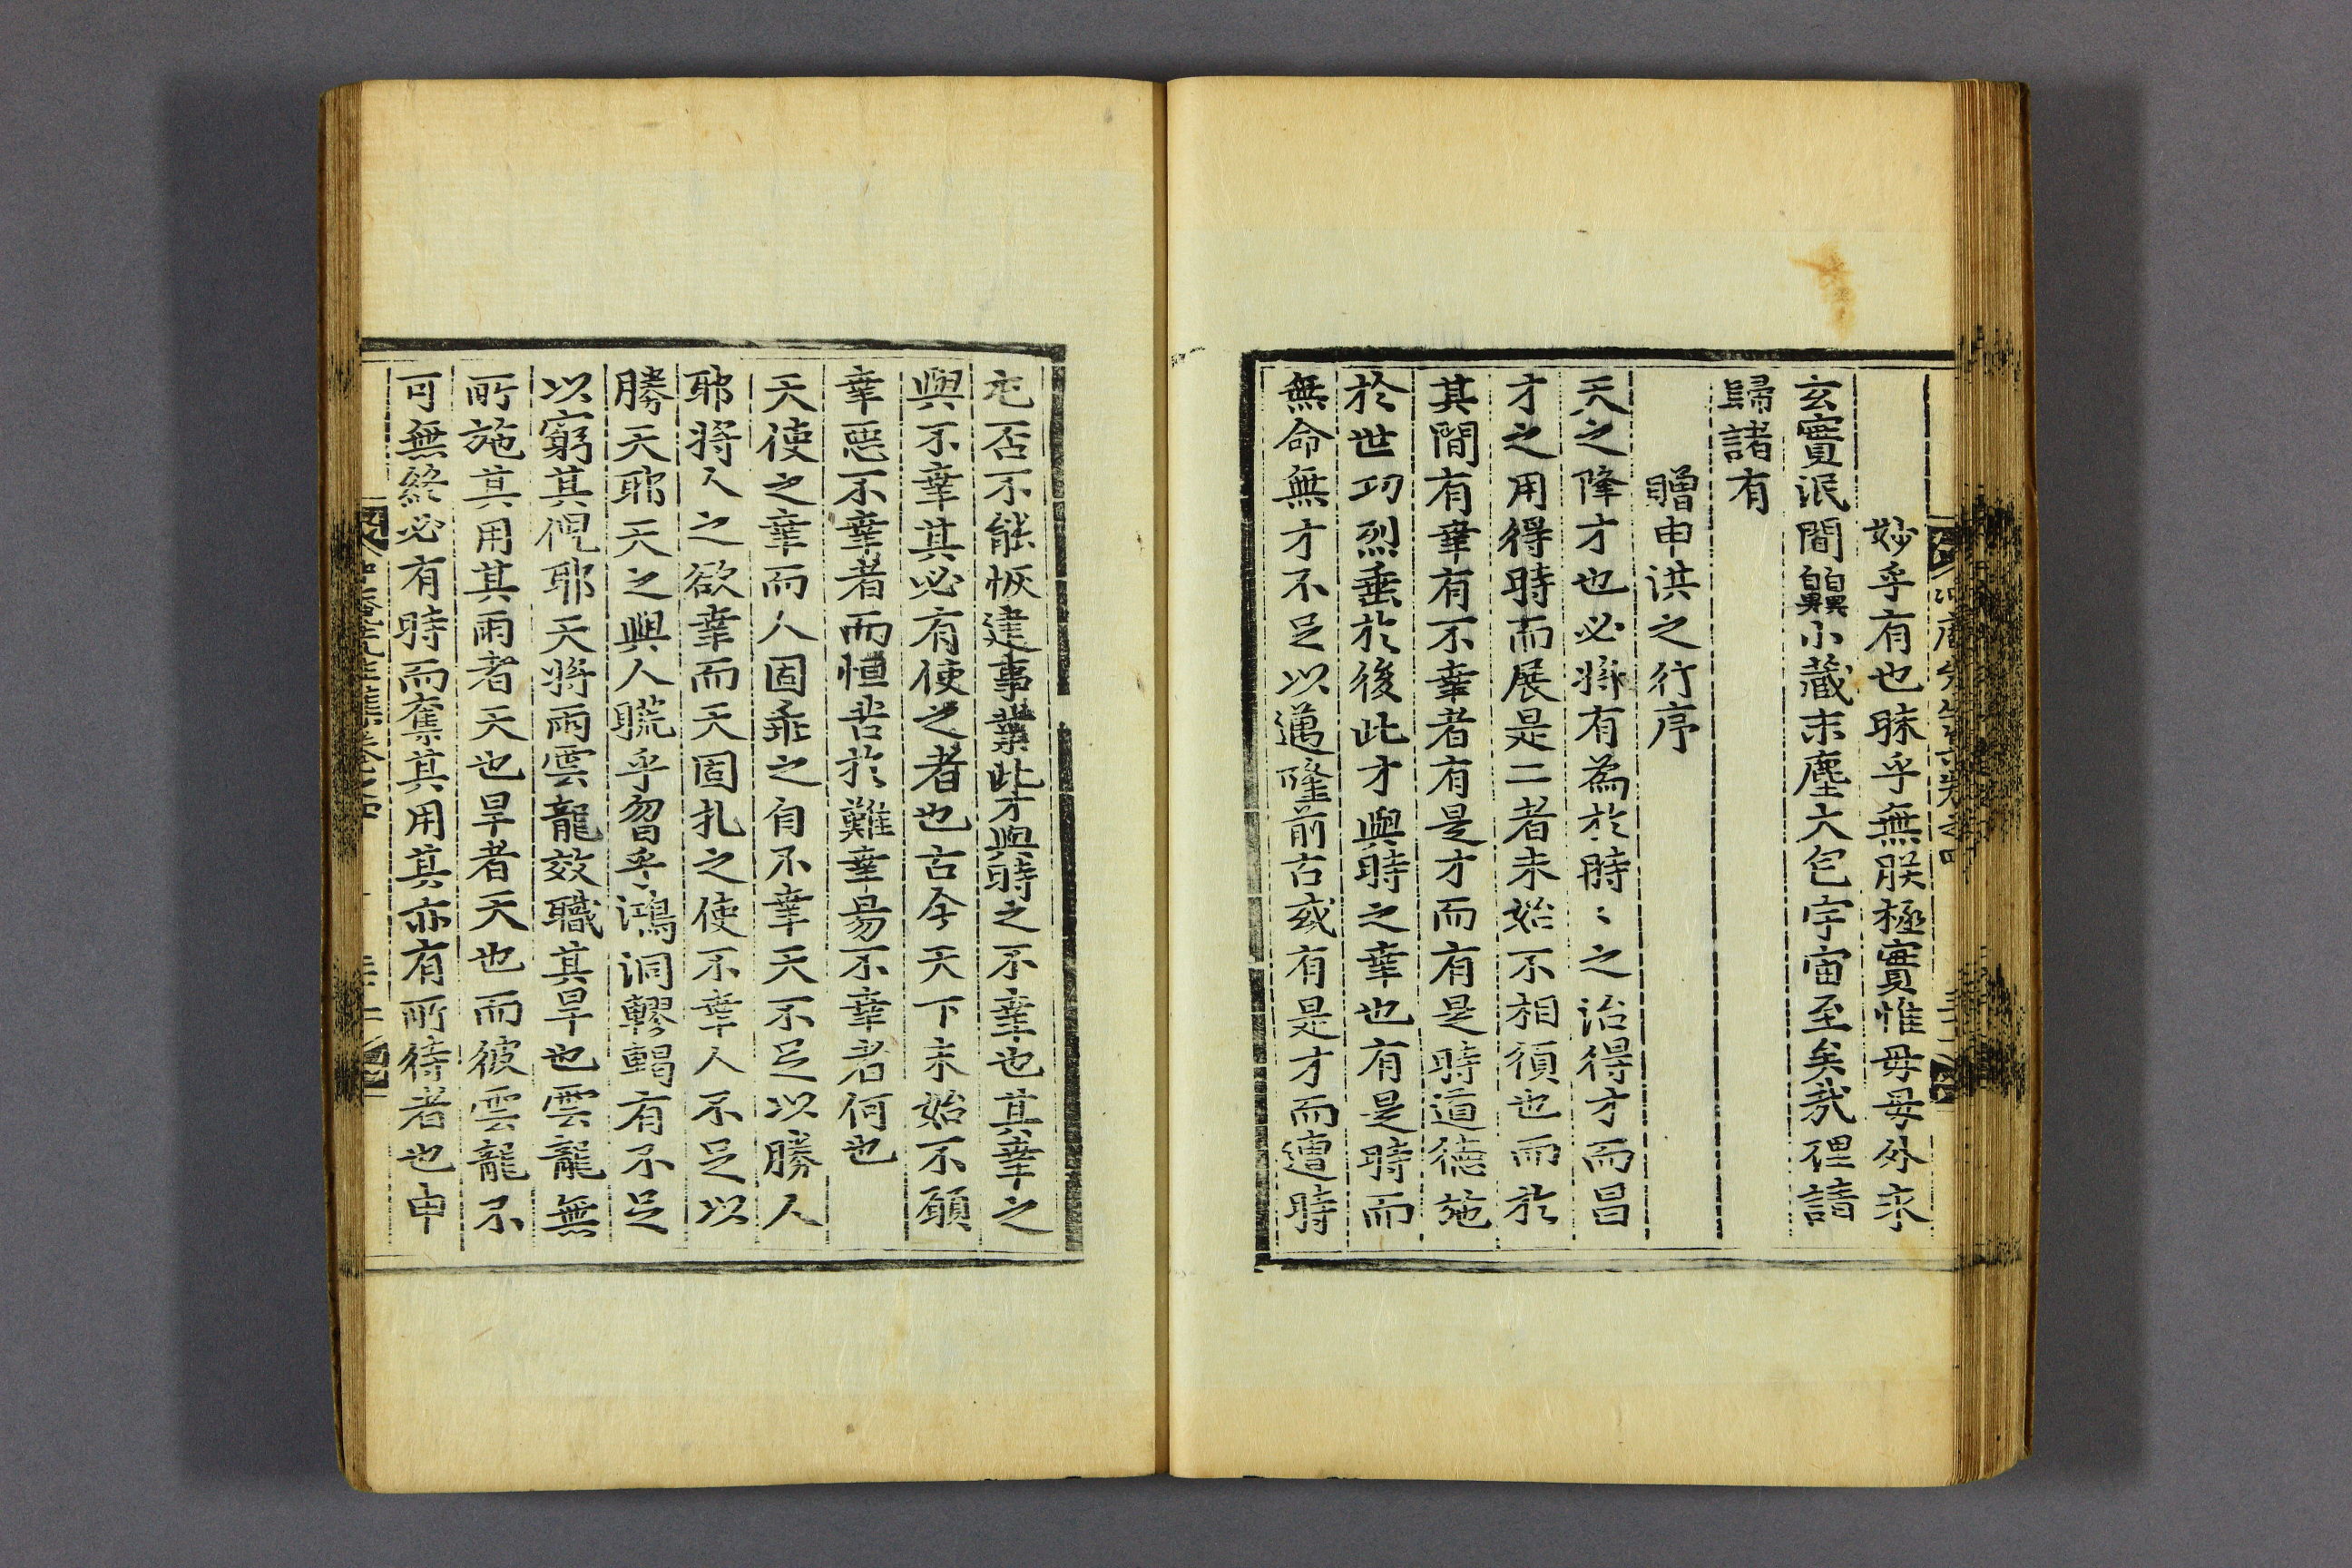 妙乎有也眛乎無朕極實惟毋毋外求
玄實泯闇鼻小藏末塵大包宇宙至矣哉裡請
歸諸有
贈申洪之行序
天之降才也必將有爲於時〻之治得才而昌
才之用得時而展是二者未始不相須也而於
其間有幸有不幸者有是才而有是時道德施
於世功烈垂於後此才與時之幸也有是時而
無命無才不足以邁隆前古或有是才而遭時
屯否不能恢建事業此才與時之不幸也其幸之
與不幸其必有使之者也古今天下未始不願
幸惡不幸者而恒苦於難幸易不幸者何也
天使之幸而人固乖之自不幸天不足以勝人
耶將人之欲幸而天固扎之使不幸人不足以
勝天耶天之與人聽乎曶乎鴻洞轇轕有不足
以窮其倪耶天將雨雲龍效職其旱也雲龍無
所施其用其雨者天也旱者天也而彼雲龍不
可無終必有時而奮其用其亦有所待者也申